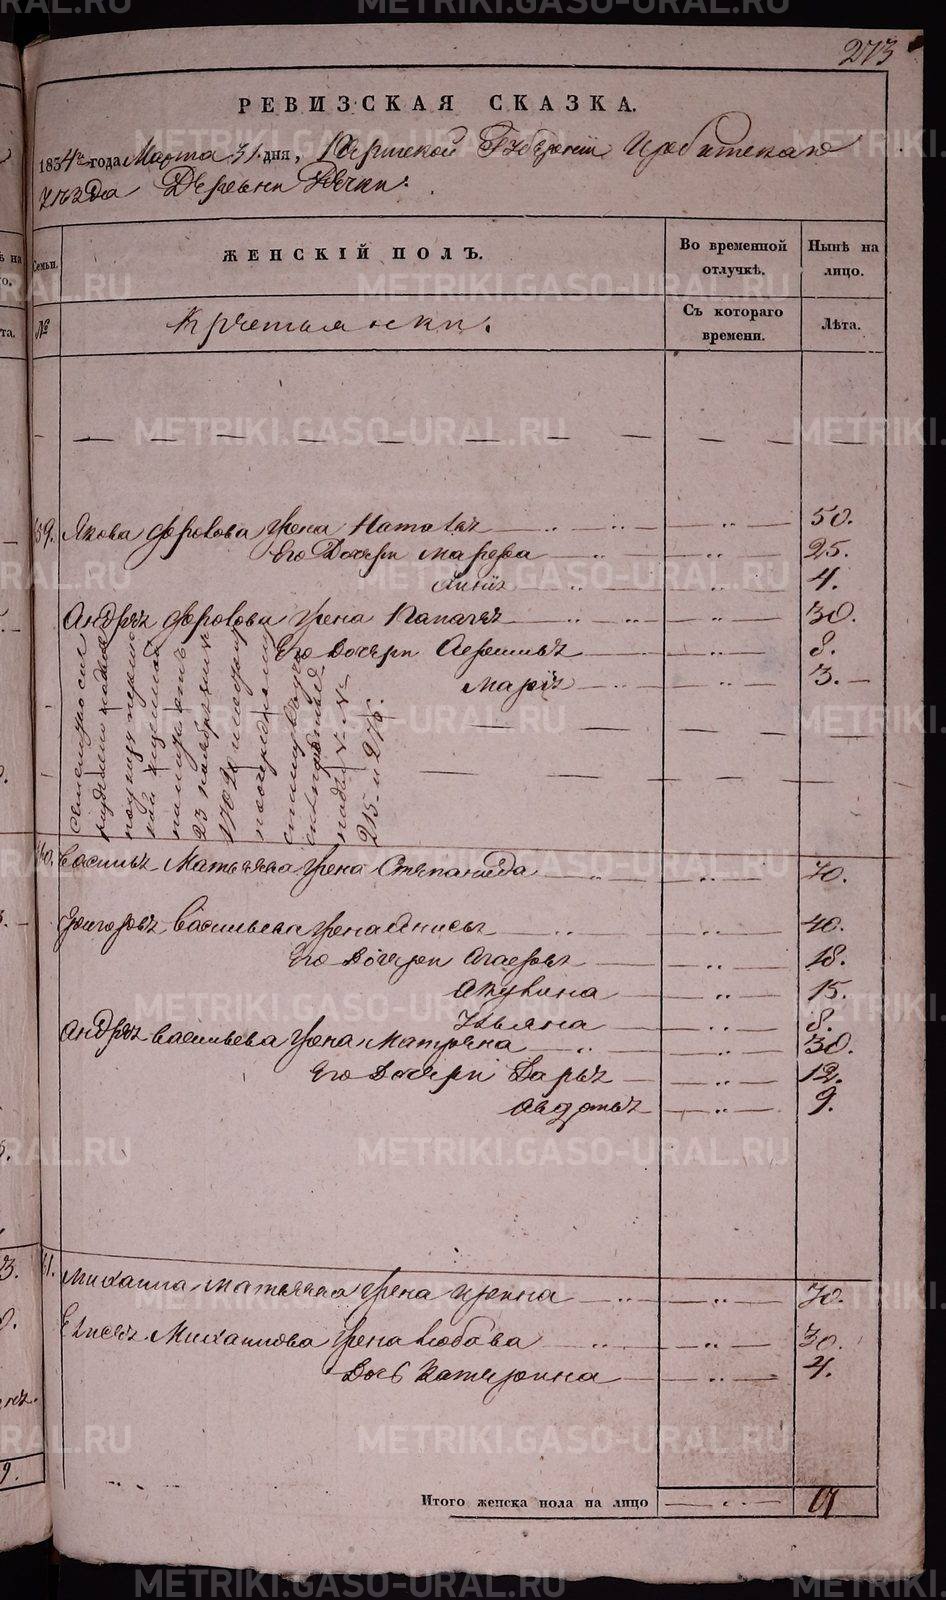 273
РЕВИЗСКАЯ СКАЗКА.
1834 года Марта 31 дня, Пермской Губернiи Ирбитскаго
уѣзда Деревни
Семьи. ЖЕНСКIЙ ПОЛЪ. Во временной отлучкѣ. Нынѣ на лицо.
№ Крестьянки. Съ котораго времени. Лѣта.
59. Якова Фролова жена Наталья 50.
Его Дочери Марфа 25.
4.
Андрея Фролова жена Палагея 30.
Его дочери 8.
Марiя 3.
215 и 276.
60. Василья Матвѣева жена Степанида 70.
Григорья Васильева жена Анисья 40.
Его дочери Агафья 18.
Акулина 15.
Ульяна 8.
Андрея Васильева жена Матрена 30.
Его Дочери Дарья 12.
Авдотья 9.
61. Михаила Матвѣева жена Ирина 70.
Елисея Михаилова жена Любава 30.
Дочь Катерина 4.
Итого женска пола на лицо 17
METRIKI.GASO-URAL.RU